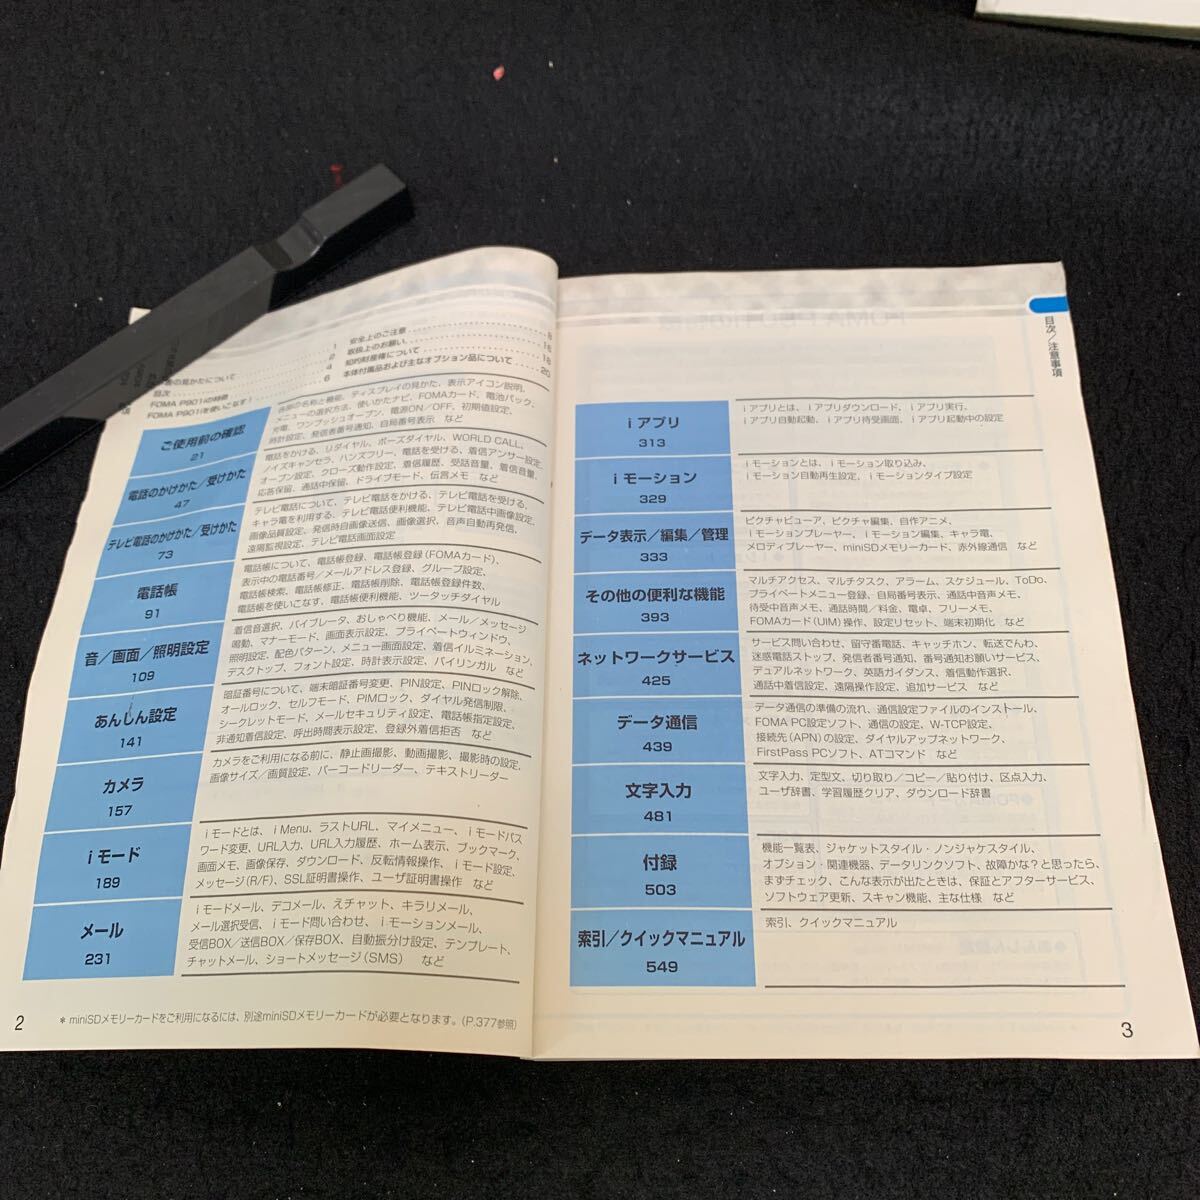 の見かたについて 1
目次 2
FOMA P901iの特徴 4
FOMA P901iを使いこなす! 6
安全上のご注意 8
取扱上のお願い 16
知的財産権について 18
本体付属品および主なオプション品について 20
ご使用前の確認
21
各部の名称と機能、ディスプレイの見かた、表示アイコン説明、
メニューの選択方法、使いかたナビ、FOMAカード、電池パック、
充電、ワンプッシュオープン、電源ON/OFF、初期値設定、
時計設定、発信者番号通知、自局番号表示 など
電話のかけかた/受けかた
47
電話をかける、リダイヤル、ポーズダイヤル、WORLD CALL、
ノイズキャンセラ、ハンズフリー、電話を受ける、着信アンサー設定、
オープン設定、クローズ動作設定、着信履歴、受話音量、着信音量、
応答保留、通話中保留、ドライブモード、伝言メモ など
テレビ電話のかけかた/受けかた
73
テレビ電話について、テレビ電話をかける、テレビ電話を受ける、
キャラ電を利用する、テレビ電話便利機能、テレビ電話中画像設定、
画像品質設定、発信時自画像送信、画像選択、音声自動再発信、
遠隔監視設定、テレビ電話画面設定
電話帳
91
電話帳について、電話帳登録、電話帳登録(FOMAカード)、
表示中の電話番号/メールアドレス登録、グループ設定、
電話帳検索、電話帳修正、電話帳削除、電話帳登録件数、
電話帳を使いこなす、電話帳便利機能、ツータッチダイヤル
音/画面/照明設定
109
着信音選択、バイブレータ、おしゃべり機能、メール/メッセージ
鳴動、マナーモード、画面表示設定、プライベートウィンドウ、
照明設定、配色パターン、メニュー画面設定、着信イルミネーション、
デスクトップ、フォント設定、時計表示設定、バイリンガル など
あんしん設定
141
暗証番号について、端末暗証番号変更、PIN設定、PINロック解除、
オールロック、セルフモード、PIMロック、ダイヤル発信制限、
シークレットモード、メールセキュリティ設定、電話帳指定設定、
非通知着信設定、呼出時間表示設定、登録外着信拒否 など
カメラ
157
カメラをご利用になる前に、静止画撮影、動画撮影、撮影時の設定、
画像サイズ/画質設定、バーコードリーダー、テキストリーダー
iモード
189
iモードとは、iMenu、ラストURL、マイメニュー、iモードパス
ワード変更、URL入力、URL入力履歴、ホーム表示、ブックマーク、
画面メモ、画像保存、ダウンロード、反転情報操作、iモード設定、
メッセージ(R/F)、SSL証明書操作、ユーザ証明書操作 など
メール
231
iモードメール、デコメール、えチャット、キラリメール、
メール選択受信、iモード問い合わせ、iモーションメール、
受信BOX/送信BOX/保存BOX、自動振分け設定、テンプレート、
チャットメール、ショートメッセージ(SMS) など
* miniSDメモリーカードをご利用になるには、別途miniSDメモリーカードが必要となります。(P.377参照)
2
目次/注意事項
iアプリ
313
iアプリとは、iアプリダウンロード、iアプリ実行、
iアプリ自動起動、iアプリ待受画面、iアプリ起動中の設定
iモーション
329
iモーションとは、iモーション取り込み、
iモーション自動再生設定、iモーションタイプ設定
データ表示/編集/管理
333
ピクチャビューア、ピクチャ編集、自作アニメ、
iモーションプレーヤー、iモーション編集、キャラ電、
メロディプレーヤー、miniSDメモリーカード、赤外線通信 など
その他の便利な機能
393
マルチアクセス、マルチタスク、アラーム、スケジュール、ToDo、
プライベートメニュー登録、自局番号表示、通話中音声メモ、
待受中音声メモ、通話時間/料金、電卓、フリーメモ、
FOMAカード(UIM)操作、設定リセット、端末初期化 など
ネットワークサービス
425
サービス問い合わせ、留守番電話、キャッチホン、転送でんわ、
迷惑電話ストップ、発信者番号通知、番号通知お願いサービス、
デュアルネットワーク、英語ガイダンス、着信動作選択、
通話中着信設定、遠隔操作設定、追加サービス など
データ通信
439
データ通信の準備の流れ、通信設定ファイルのインストール、
FOMA PC設定ソフト、通信の設定、W-TCP設定、
接続先(APN)の設定、ダイヤルアップネットワーク、
FirstPass PCソフト、ATコマンド など
文字入力
481
文字入力、定型文、切り取り/コピー/貼り付け、区点入力、
ユーザ辞書、学習履歴クリア、ダウンロード辞書
付録
503
機能一覧表、ジャケットスタイル・ノンジャケスタイル、
オプション・関連機器、データリンクソフト、故障かな?と思ったら、
まずチェック、こんな表示が出たときは、保証とアフターサービス、
ソフトウェア更新、スキャン機能、主な仕様 など
索引/クイックマニュアル
549
索引、クイックマニュアル
3